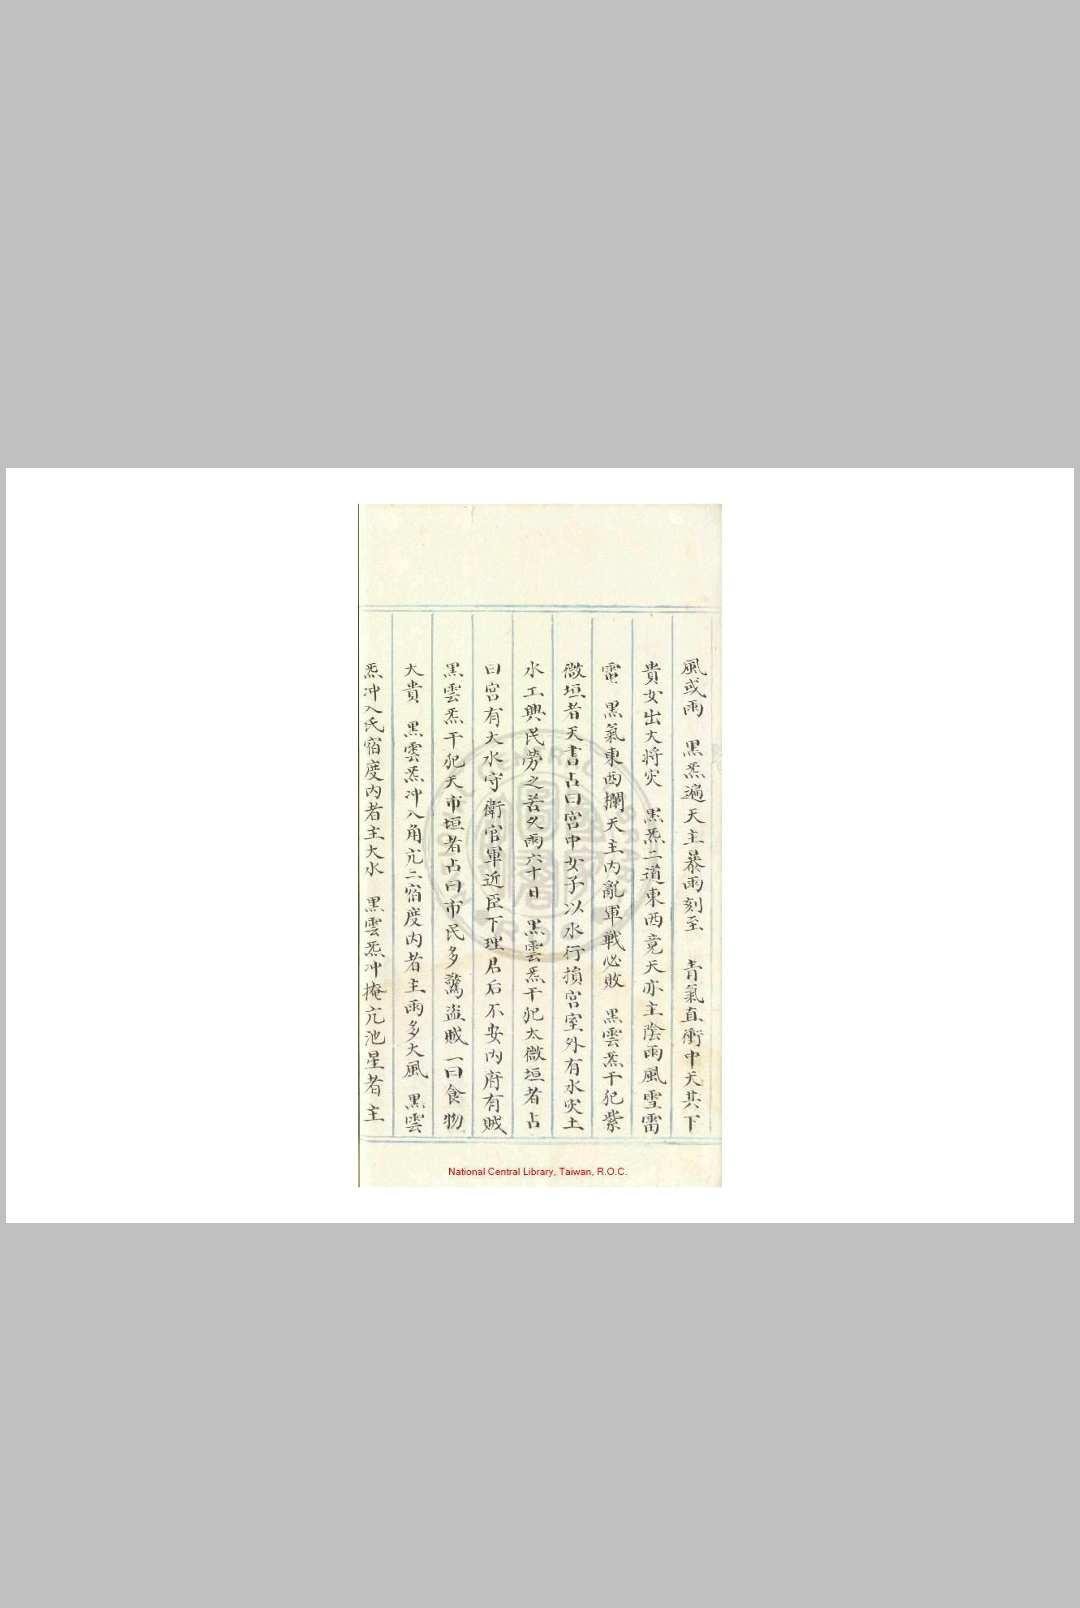 風或雨　黒炁遍天主暴雨刻至　青氣直衝中天其下
貴女出大将灾　黒炁二道東西竟天亦主陰雨風雪雷
電　黒氣東西攔天主内亂軍戦必敗　黒雲炁干犯紫
微垣者天書占曰宮中女子以水行損宮室外有水灾土
水工興民勞之苦久雨六十日　黒雲炁干犯太微垣者占
曰宮有大水守衛官軍近臣下理君后不安内府有賊
黒雲炁干犯天市垣者占曰市民多驚盗賊一曰食物
大貴　黒雲炁冲入角亢二宿度内者主雨多大風　黒雲
炁冲入氐宿度内者主大水　黒雲炁冲掩亢池星者主
National Central Library, Taiwan, R.O.C.